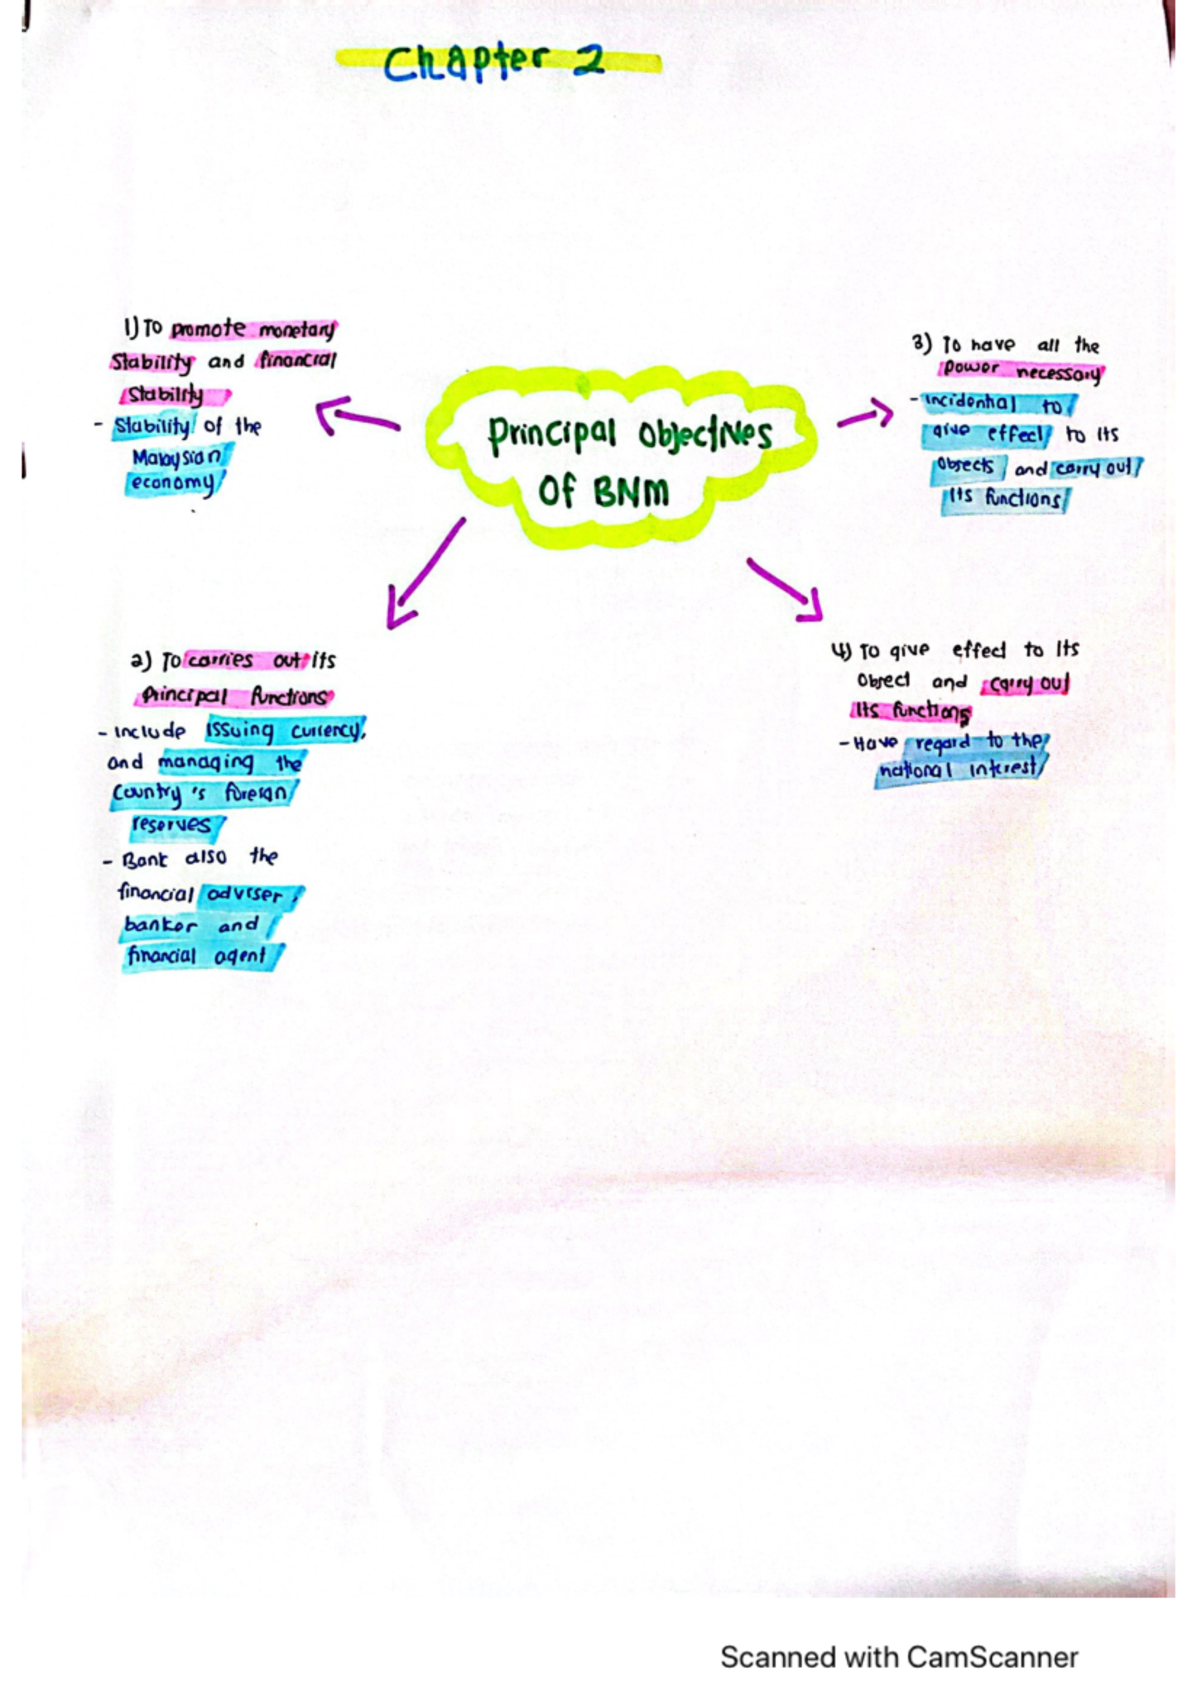 Chapter 2
Principal Objectives
Of BNM
1) To promote monetary
Stability and financial
Stability
- Stability of the
Malaysian
economy
2) To carries out its
Principal functions
- Include issuing currency,
and managing the
Country's foreign
reserves
- Bank also the
financial adviser,
banker and
financial agent
3) To have all the
Power necessary
- incidental to
give effect to its
Objects and carry out
its functions
4) To give effect to Its
Object and carry out
Its functions
- Have regard to the
national interest
Scanned with CamScanner